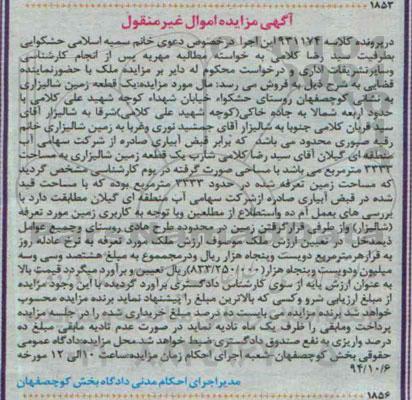 ۱۸۵۳
آگهی مزایده اموال غیر منقول
درپرونده کلاسه ۹۳۱۱۷۴ این اجرا درخصوص دعوی خانم سمیه اسلامی حشکوایی
بطرفیت سید رضا کلامی به خواسته مطالبه مهریه پس از انجام کارشناسی
وسایرتشریفات اداری و درخواست محکوم له دایر بر مزایده ملک با حضورنماینده
قضایی به شرح ذیل به فروش می رسد: مال مورد مزایده:یک قطعه زمین شالیزاری
و نشقی کوچصفهان روستای حشکواء خیابان شهداء کوچه شهید علی کلامی با
حدود اربعه شمالا به جاده خاکی(کوچه شهید علی کلامی)شرقا به شالیزار آقای
سید قربان کلامی جنوبا به شالیزار آقای جمشید نوری وغربا به زمین شالیزاری خانم
رقیه صبوری محدود می باشد که برابر قبض آبیاری صادره از شرکت سهامی آب
منطقه ای گیلان آقای سید رضا کلامی شارب یک قطعه زمین شالیزاری به مساحت
۳۳۳۳ مترمربع می باشد با مساحی صورت گرفته در بوم کارشناسی مشخص گردید
که مساحت زمین تعرفه شده در حدود ۳۳۳۳ مترمربع بوده که با مساحت قید
شده در قبض آبیاری صادره ازشرکت سهامی آب منطقه ای گیلان مطابقت دارد با
بررسی های بعمل آم ده واستطلاع از مطلعین وبا توجه به کاربری زمین مورد تعرفه
(شالیزار) واز طرفی قرارگرفتن زمین در محدوده طرح هادی روستای وجمیع عوامل
ذیمدخل در تعیین ارزش ملک موصوف ارزش ملک مورد تعرفه به نرخ عادله روز
به قرارهرمترمربع دویست وپنجاه هزار ریال ودرمجموع به مبلغ هشتصد وسی وسه
میلیون ودویست وپنجاه هزار(۸۳۳/۲۵۰/۰۰۰) ریال تعیین وبرآورد میگردد قیمت بالا
به عنوان ارزش پایه از سوی کارشناس دادگستری برآورد گردیده با این وجود مزایده
از مبلغ ارزیابی شرو وکسی که بالاترین مبلغ را پیشنهاد نماید برنده مزایده محسوب
خواهد شد برنده مزایده می بایست ده درصد مبلغ خریداری شده را در جلسه مزایده
پرداخت ومابقی را ظرف یک ماه تادیه نماید در صورت عدم تادیه مابقی مبلغ ده
درصد واریزی به نفع صندوق دادگستری ضبط خواهد شد.محل مزایده:دادگاه عمومی
حقوقی بخش کوچصفهان-شعبه اجرای احکام زمان مزایده:ساعت ۱۰الی ۱۲ مورخه
۹۴/۱۰/۶
مدیراجرای احکام مدنی دادگاه بخش کوچصفهان
۱۸۵۶